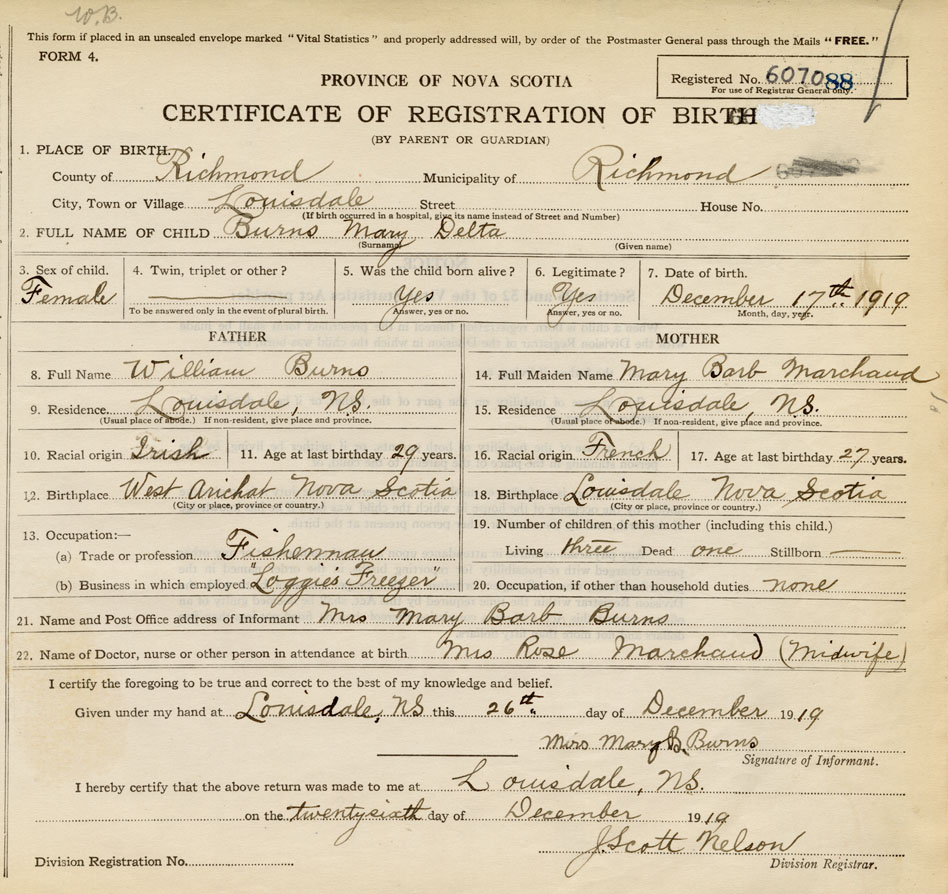 W.B.
This form if placed in an unsealed envelope marked "Vital Statistics" and properly addressed will, by order of the Postmaster General pass through the Mails "FREE."
FORM 4.
PROVINCE OF NOVA SCOTIA
Registered No. 607088
For use of Registrar General only.
CERTIFICATE OF REGISTRATION OF BIRTH
(BY PARENT OR GUARDIAN)
1. PLACE OF BIRTH
County of Richmond Municipality of Richmond
City, Town or Village Louisdale Street House No.
(If birth occurred in a hospital, give its name instead of Street and Number)
2. FULL NAME OF CHILD Burns Mary Delta
(Surname) (Given name)
3. Sex of child. 4. Twin, triplet or other? 5. Was the child born alive? 6. Legitimate? 7. Date of birth.
Female Yes Yes December 17th 1919
To be answered only in the event of plural birth. Answer, yes or no. Answer, yes or no. Month, day, year.
FATHER
8. Full Name William Burns
9. Residence Louisdale, N.S.
(Usual place of abode.) If non-resident, give place and province.
10. Racial origin Irish 11. Age at last birthday 29 years.
12. Birthplace West Arichat Nova Scotia
(City or place, province or country.)
13. Occupation:—
(a) Trade or profession Fisherman
(b) Business in which employed "Loggie's Freezer"
MOTHER
14. Full Maiden Name Mary Barb Marchand
15. Residence Louisdale, NS.
(Usual place of abode.) If non-resident, give place and province.
16. Racial origin French 17. Age at last birthday 27 years.
18. Birthplace Louisdale Nova Scotia
(City or place, province or country.)
19. Number of children of this mother (including this child.)
Living three Dead one Stillborn
20. Occupation, if other than household duties none
21. Name and Post Office address of Informant Mrs Mary Barb Burns
22. Name of Doctor, nurse or other person in attendance at birth Mrs Rose Marchand (Midwife)
I certify the foregoing to be true and correct to the best of my knowledge and belief.
Given under my hand at Louisdale, NS this 26th day of December 1919
Mrs Mary B. Burns
Signature of Informant.
I hereby certify that the above return was made to me at Louisdale, NS.
on the twentysixth day of December 1919
J. Scott Nelson
Division Registration No. Division Registrar.